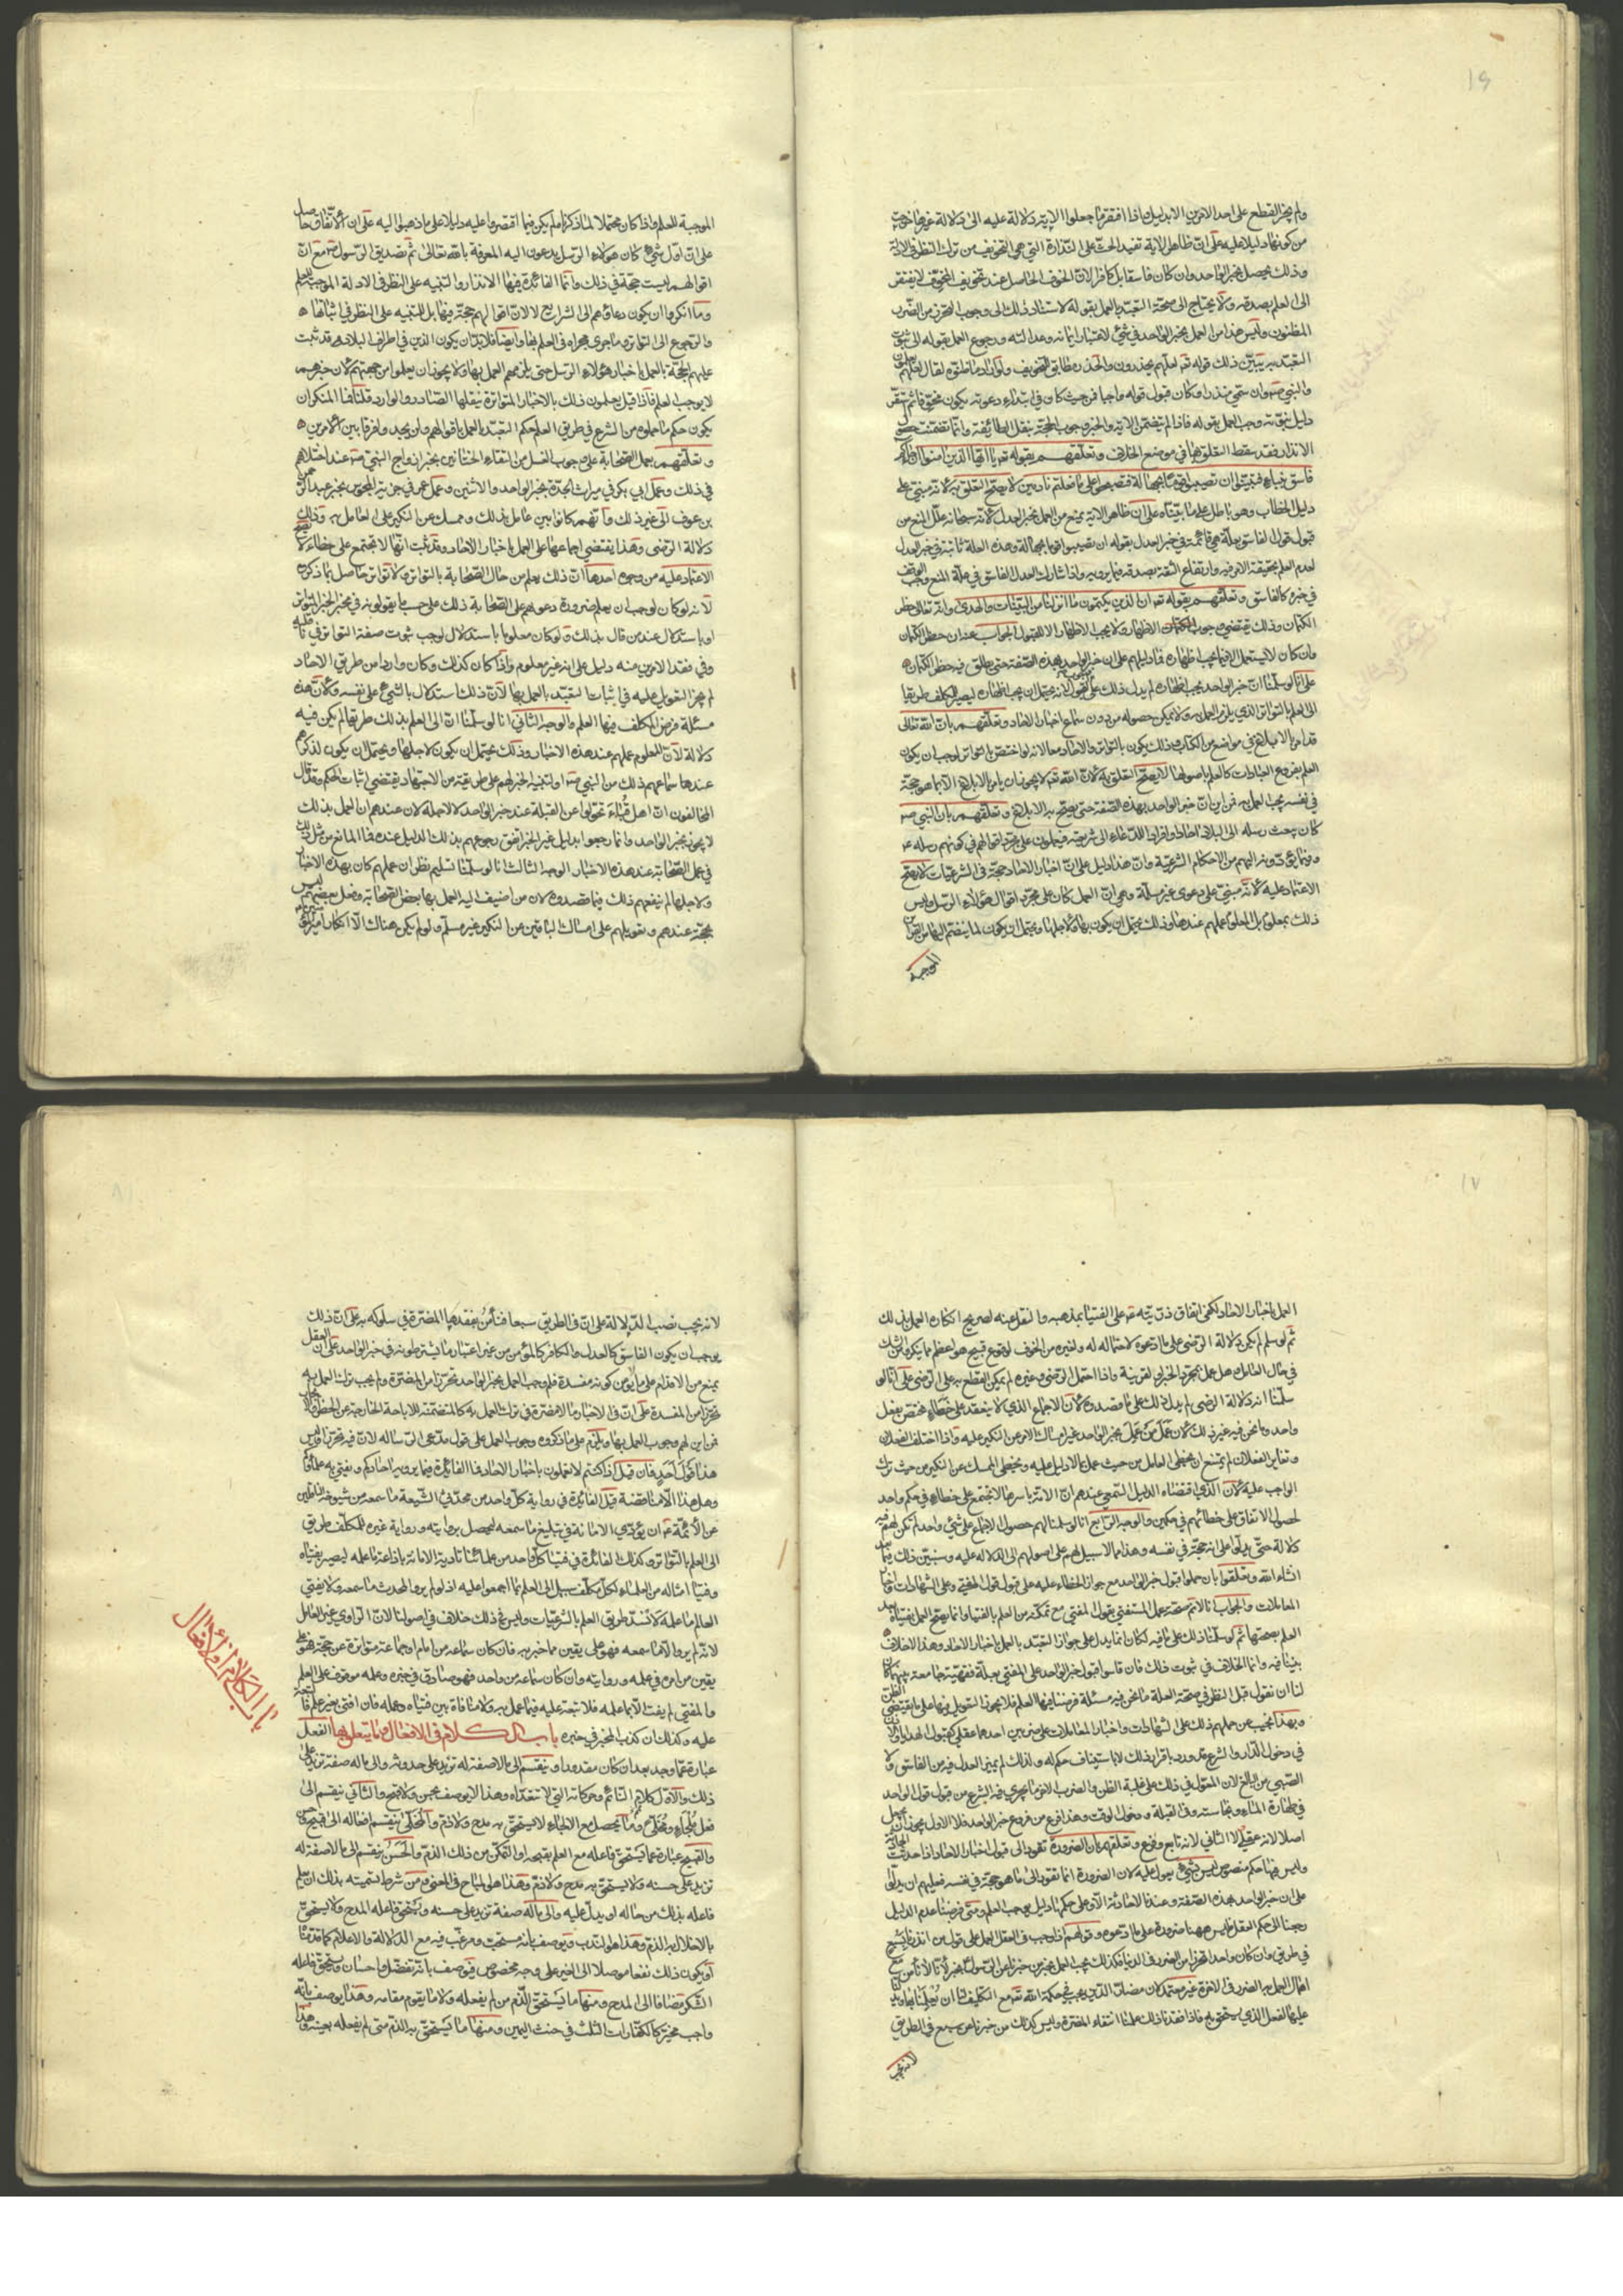 ١٩
ولم يجز القطع على احد الامرين الا بدليل واذا افتقر ما جعلوا الاية دلالة عليه الى دلالة غيرها خرجت
من كونها دليلا عليه على ان ظاهر الاية تفيد الحث على النذارة التي هي التخويف من ترك النظر في الادلة
وذلك يحصل بخبر الواحد وان كان فاسقا بل كافرا لان الخوف الحاصل عند تخويف المخوف لا يفتقر
الى العلم بصدقه ولا يحتاج الى صحة التعبد بالعمل بقوله لاستناد ذلك الى وجوب التحرز من الضرر
المظنون وليس هذا من العمل بخبر الواحد في شيء لاعتبار ايمانه وعدالته ورجوع العمل بقوله الى ثبوت
التعبد به يبين ذلك قوله تعـ لعلهم يحذرون والحذر مطابق للتخويف ولو اراد ما ظنوه لقال لعلهم يعملون
والنبي صـ وان سمي منذرا وكان قبول قوله واجبا فمن حيث كان في ابتداء دعوته يكون مخوفا ثم استقر
دليل نبوته وجب العمل بقوله فاذا لم يتضمن الاية والخبر وجوب الحجة بنقل الطائفة وانما تضمنت
الانذار فقد سقط التعلق بها في موضع الخلاف وتعلقهم بقوله تعـ يا ايها الذين امنوا ان جاءكم
فاسق بنباء فتبينوا ان تصيبوا قوما بجهالة فتصبحوا على ما فعلتم نادمين لا يصح التعلق به لانه مبني على
دليل الخطاب وهو باطل على ما بيناه على ان ظاهر الاية يمنع من العمل بخبر العدل لانه سبحانه علل المنع من
قبول قول الفاسق بعلة هي قائمة في خبر العدل بقوله ان تصيبوا قوما بجهالة وهذه العلة ثابتة في خبر العدل
لعدم العلم بحقيقة الامر فيه وارتفاع الثقة بصدقه فيما يرويه واذا شارك العدل الفاسق في علة المنع وجب التوقف
في خبره كالفاسق وتعلقهم بقوله تعـ ان الذين يكتمون ما انزلنا من البينات والهدى وانه تعالى حظر
الكتمان وذلك يقتضي وجوب الاظهار ولا يجب الاظهار الا للقبول الجواب عنه ان حظر الكتمان
وان كان لا يستعمل الا فيما يجب اظهاره فما دليلهم على ان خبر الواحد بهذه الصفة حتى يطلق فيه حظر الكتمان
على انا لو سلمنا ان خبر الواحد يجب اظهاره لم يدل ذلك على القبول لانه يحتمل ان يجب اظهاره ليصير للمكلف طريقا
الى العلم بالتواتر الذي يلزم العمل به ولا يمكن حصوله من دون سماع اخبار الاحاد وتعلقهم بان الله تعالى
قد امر بالابلاغ في مواضع من الكتاب وذلك يكون بالتواتر والاحاد معا لانه لو اختص بالتواتر لوجب ان يكون
العلم بفروع العبادات كالعلم باصولها لا يصح التعلق به لان الله تعـ لا يجوز ان يامر بالابلاغ الا بما هو حجة
في نفسه يجب العمل به فمن اين ان خبر الواحد بهذه الصفة حتى يصح به الابلاغ وتعلقهم بان النبي صـ
كان يبعث رسله الى البلاد احادا وافرادا للدعاء الى شريعته فيعملون على مجرد اقوالهم في كونهم رسله عـ
وفيما يؤدونه اليهم من الاحكام الشرعية وان هذا دليل على ان اخبار الاحاد حجة في الشرعيات لا يصح
الاعتماد عليه لانه مبني على دعوى غير مسلمة وهي ان العمل كان على مجرد اقوال هؤلاء الرسل وليس
ذلك بمعلوم بل المعلوم عملهم عندها وذلك يحتمل ان يكون بها ولاجلها ويحتمل ان يكون لما ينضم اليها من القرائن
الموجبة
الموجبة للعلم واذا كان محتملا لما ذكرنا لم يكن فيما اقتصروا عليه دليلا على ما ذهبوا اليه على ان الاتفاق حاصل
على ان اول شيء كان هؤلاء الرسل يدعون اليه المعرفة بالله تعالى ثم تصديق الرسول صـ مع ان
اقوالهم ليست حجة في ذلك وانما الفائدة فيها الانذار والتنبيه على النظر في الادلة الموجبة للعلم
وما انكروا ان يكون دعاؤهم الى الشرايع لا لان اقوالهم حجة فيها بل للتنبيه على النظر في اثباتها
والرجوع الى التواتر وما جرى مجراه في العلم بها وايضا فلا بد ان يكون الذين في اطراف البلاد قد ثبتت
عليهم الحجة بالعمل باخبار هؤلاء الرسل حتى يلزمهم العمل بها ولا يجوز ان يعلموا من جهتهم لان خبرهم
لا يوجب العلم فاذا قيل يعلمون ذلك بالاخبار المتواترة ينقلها الصادر والوارد قلنا فما المنكر ان
يكون حكم ما حملوه من الشرع في طريق العلم حكم التعبد بالعمل باقوالهم ولن يجدوا فرقا بين الامرين
وتعلقهم بعمل الصحابة على وجوب الغسل من التقاء الختانين بخبر ازواج النبي صـ عند اختلافهم
في ذلك وعمل ابي بكر في ميراث الجدة بخبر الواحد والاثنين وعمل عمر في جزية المجوس بخبر عبد الرحمن
بن عوف الى غير ذلك وانهم كانوا بين عامل بذلك وممسك عن النكير على العامل به وذلك
دلالة الرضى وهذا يقتضي اجماعها على العمل باخبار الاحاد وقد ثبت انها لا تجتمع على خطاء لا يصح
الاعتماد عليه من وجوه احدها ان ذلك يعلم من حال الصحابة بالتواتر ولا تواتر حاصل بما ذكروه
لانه لو كان لوجب ان يعلم ضرورة دعواهم على الصحابة ذلك على حسب ما يقولونه في مخبر الخبر المتواتر
او باستدلال عند من قال بذلك ولو كان معلوما باستدلال لوجب ثبوت صفة التواتر في ناقليه
وفي فقد الامرين منه دليل على انه غير معلوم واذا كان كذلك وكان واردا من طريق الاحاد
لم يجز التعويل عليه في اثبات التعبد بالعمل بها لان ذلك استدلال بالشيء على نفسه ولان هذه
مسئلة فرض المكلف فيها العلم والوجه الثاني انا لو سلمنا ان الى العلم بذلك طريقا لم يكن فيه
دلالة لان المعلوم عملهم عند هذه الاخبار وذلك يحتمل ان يكون لاجلها ويحتمل ان يكون لذكرهم
عندها سماعهم ذلك من النبي صـ او لتنبيه الخبر لهم على طريقة من الاجتهاد يقتضي اثبات الحكم وقد قال
المخالفون ان اهل قباء تحولوا عن القبلة عند خبر الواحد لا لاجله لان عندهم ان العمل بذلك
لا يجوز بخبر الواحد وانما رجعوا بدليل غير الخبر اتفق رجوعهم بذلك الدليل عنده فما المانع من مثل ذلك
في عمل الصحابة عند هذه الاخبار الوجه الثالث انا لو سلمنا تسليم نظر ان عملهم كان بهذه الاخبار
ولاجلها لم ينفعهم ذلك فيما قصدوه لان من اضيف اليه العمل بها بعض الصحابة وفعل بعضهم ليس
بحجة عندهم وتعويلهم على امساك الباقين عن النكير غير مسلم ولو لم يكن هناك الا انكار امير
١٧
العمل باخبار الاحاد لكفى اتفاق ذريته عـ على الفتيا بمذهبه والنقل عنه لصريح انكاره العمل بذلك
ثم لو سلم لم يكن دلالة الرضى على ما ادعوه لاحتماله له ولغيره من الخوف لوقوع قبيح هو اعظم مما ينكر والشك
في حال العامل هل عمل بمجرد الخبر او لقرينة واذا احتمل الرضى وغيره لم يمكن القطع به على الرضى على انا لو
سلمنا انه دلالة الرضى لم يدل ذلك على ما قصدوه لان الاجماع الذي لا ينعقد على خطاء مختص بفعل
واحد وما نحن فيه غير ذلك لان عمل من عمل بخبر الواحد غير امساك الاخر عن النكير عليه واذا اختلف الفعلان
وتغاير الفعلان لم يمتنع ان يخطى العامل من حيث عمل بما لا دليل عليه ويخطى الممسك عن النكير من حيث ترك
الواجب عليه لان الذي اقتضاه الدليل السمعي عندهم ان الامة باسرها لا تجتمع على خطاء في حكم واحد
لحصول الاتفاق على خطائهم في حكمين والوجه الرابع انا لو سلمنا لهم حصول الاجماع على شيء واحد لم تكن لهم فيه
دلالة حتى يدلوا على انه حجة في نفسه وهذا مما لا سبيل لهم على اصولهم الى الدلالة عليه وسنبين ذلك فيما بعد
انشاء الله وتعلقوا بان حملوا قبول خبر الواحد مع جواز الخطاء عليه على قبول قول المفتي وعلى الشهادات واخبار
المعاملات والجواب انا لا نتم صحة عمل المستفتي بقول المفتي مع تمكنه من العلم بالفتيا وانما يصح العمل بفتياه بعد
العلم بصحتها ثم لو سلمنا ذلك على ما فيه لكان انما يدل على جواز التعبد بالعمل باخبار الاحاد وهذا لا خلاف
بيننا فيه وانما الخلاف في ثبوت ذلك فان قاسوا قبول خبر الواحد على المفتي بعلة فقهية جامعة بينهما كان
لنا ان نقول قبل النظر في صحة العلة ما نحن فيه مسئلة فرضنا فيها العلم فلا يجوز التعويل فيها على ما يقتضي الظن
وبهذا نجيب عن حملهم ذلك على الشهادات واخبار المعاملات على ضربين احدهما عقلي كقبول الهدايا والاذن
في دخول الدار والشرع قد ورد باقرار ذلك لا باستيناف حكم له ولذلك لم يميز العدل فيه من الفاسق ولا
الصبي من البالغ لان المعول في ذلك على غلبة الظن والضرب الاخر ما يجري فيه الشرع من قبول قول الواحد
في طهارة الماء ونجاسته وفي القبلة ودخول الوقت وهذا فرع من فروع خبر الواحد فلا الاول يجوز ان يجعل
اصلا لانه عقلي ولا الثاني لانه تابع وفرع وتعلقهم بان الضرورة تقود الى قبول اخبار الاحاد اذا حدثت الحادثة
وليس فيها حكم منصوص ليس بشيء يعول عليه لان الضرورة انما تقود الى ما هو حجة في نفسه فعليهم ان يدلوا
على ان خبر الواحد بهذه الصفة وعندنا لا حادثة الا وعلى حكمها دليل يوجب العلم ومتى فرضنا عدم الدليل
رجعنا الى حكم العقل فليس ههنا ضرورة على ما ادعوه وقولهم اذا وجب في العقل العمل على قول من انذرنا بسبع
في طريق وان كان واحدا تحرزا من الضرر في الدنيا فكذلك يجب العمل بخبر من خبرنا عن الرسول بخبر لانا لا نامن مع
اهمال العمل به الضرر في الاخرة غير معتمد لان مضار الدين يجب في حكمة الله تعـ مع التكليف لنا ان يعلمنا اياه
عليها الفعل الذي يستحق به فاذا فقدنا ذلك علمنا انتفاء المضرة وليس كذلك من خبرنا عن سبع في الطريق
لانه يجب
لانه يجب نصب الدلالة على ان في الطريق سبعا فنأمن بفقدها المضرة في سلوكه به على ان ذلك
يوجب ان يكون الفاسق كالعدل والكافر كالمؤمن من غير اعتبار ما يشترطونه في خبر الواحد على ان العقل
يمنع من الاقدام على ما لا يؤمن كونه مفسدة فلو وجب العمل بخبر الواحد تحرزا من المضرة ولم يجب ترك العمل به
تحرزا من المفسدة على ان في الاخبار ما لا مضرة في ترك العمل به كالمتضمنة للاباحة الخارجة عن الحظر والايجاب
فمن اين لهم وجوب العمل بها ويلزم على ما ذكروه وجوب العمل على قول مدعي الرسالة لان فيه تحرزا وليس
هذا قول احد فان قيل اذا كنتم لا تعملون باخبار الاحاد فما الفائدة فيما يرويه احادكم ويفتي به علماؤكم
وهل هذا الا مناقضة قيل الفائدة في رواية كل واحد من محدثي الشيعة ما سمعه من شيوخه الناقلين
عن الائمة عـ ان يؤدي الامانة في تبليغ ما سمعه ليحصل بروايته ورواية غيره للمكلف طريق
الى العلم بالتواتر وكذلك الفائدة في فتيا كل واحد من علمائنا تادية الامانة باذاعة ما علمه ليصير بفتياه
وفتيا امثاله من العلماء لكل مكلف سبيل الى العلم بما اجمعوا عليه اذ لو لم يرو المحدث ما سمعه ولا يفتي
العالم ما علمه لانسد طريق العلم بالشرعيات وليس في ذلك خلاف في اصولنا لان الراوي غير العامل
لانه لم يرو الا ما سمعه فهو على يقين مما خبر به فان كان سماعه من امام او جماعة متواترة عن حجة فهو على
يقين من امره في عمله وروايته وان كان سماعه من واحد فهو صادق في خبره وعمله موقوف على العلم
والمفتي لم يفت الا بما علمه فلا تبعة عليه فيما عمل به ولا منافاة بين فتياه وعمله فان افتى بغير علم فالتبعة
عليه وكذلك ان كذب المخبر في خبره باب الكلام في الافعال وما يتعلق بها الفعل
عبارة عما وجد بعد ان كان مقدورا وينقسم الى ما لا صفة له تزيد على حدوثه والى ما له صفة تزيد على
ذلك والاول كلام النائم وحركاته التي لا تتعداه وهذا لا يوصف بحسن ولا قبح والثاني ينقسم الى
فعل ملجاء ومخلى وما يحصل مع الالجاء لا يستحق به مدح ولا ذم والمخلى ينقسم افعاله الى قبيح وحسن
والقبيح عبارة عما يستحق فاعله مع العلم بقبحه او التمكن من ذلك الذم والحسن ينقسم الى ما لا صفة له
تزيد على حسنه ولا يستحق به مدح ولا ذم وهذا هو المباح في المعنى ومن شرط تسميته بذلك ان يعلم
فاعله بذلك من حاله او يدل عليه والى ما له صفة تزيد على حسنه ويستحق فاعله المدح ولا يستحق
بالاخلال به الذم وهذا هو الندب ويوصف بانه مستحب ومرغب فيه مع الدلالة والاعلام كما قدمنا
او يكون ذلك نفعا موصلا الى الغير على وجه مخصوص فيوصف بانه تفضل واحسان ويستحق فاعله
الشكر مضافا الى المدح ومنها ما يستحق الذم من لم يفعله ولا ما يقوم مقامه وهذا يوصف بانه
واجب مخير كالكفارات الثلث في حنث اليمين ومنها ما يستحق به الذم متى لم يفعله بعينه وهذا
باب الكلام في الافعال